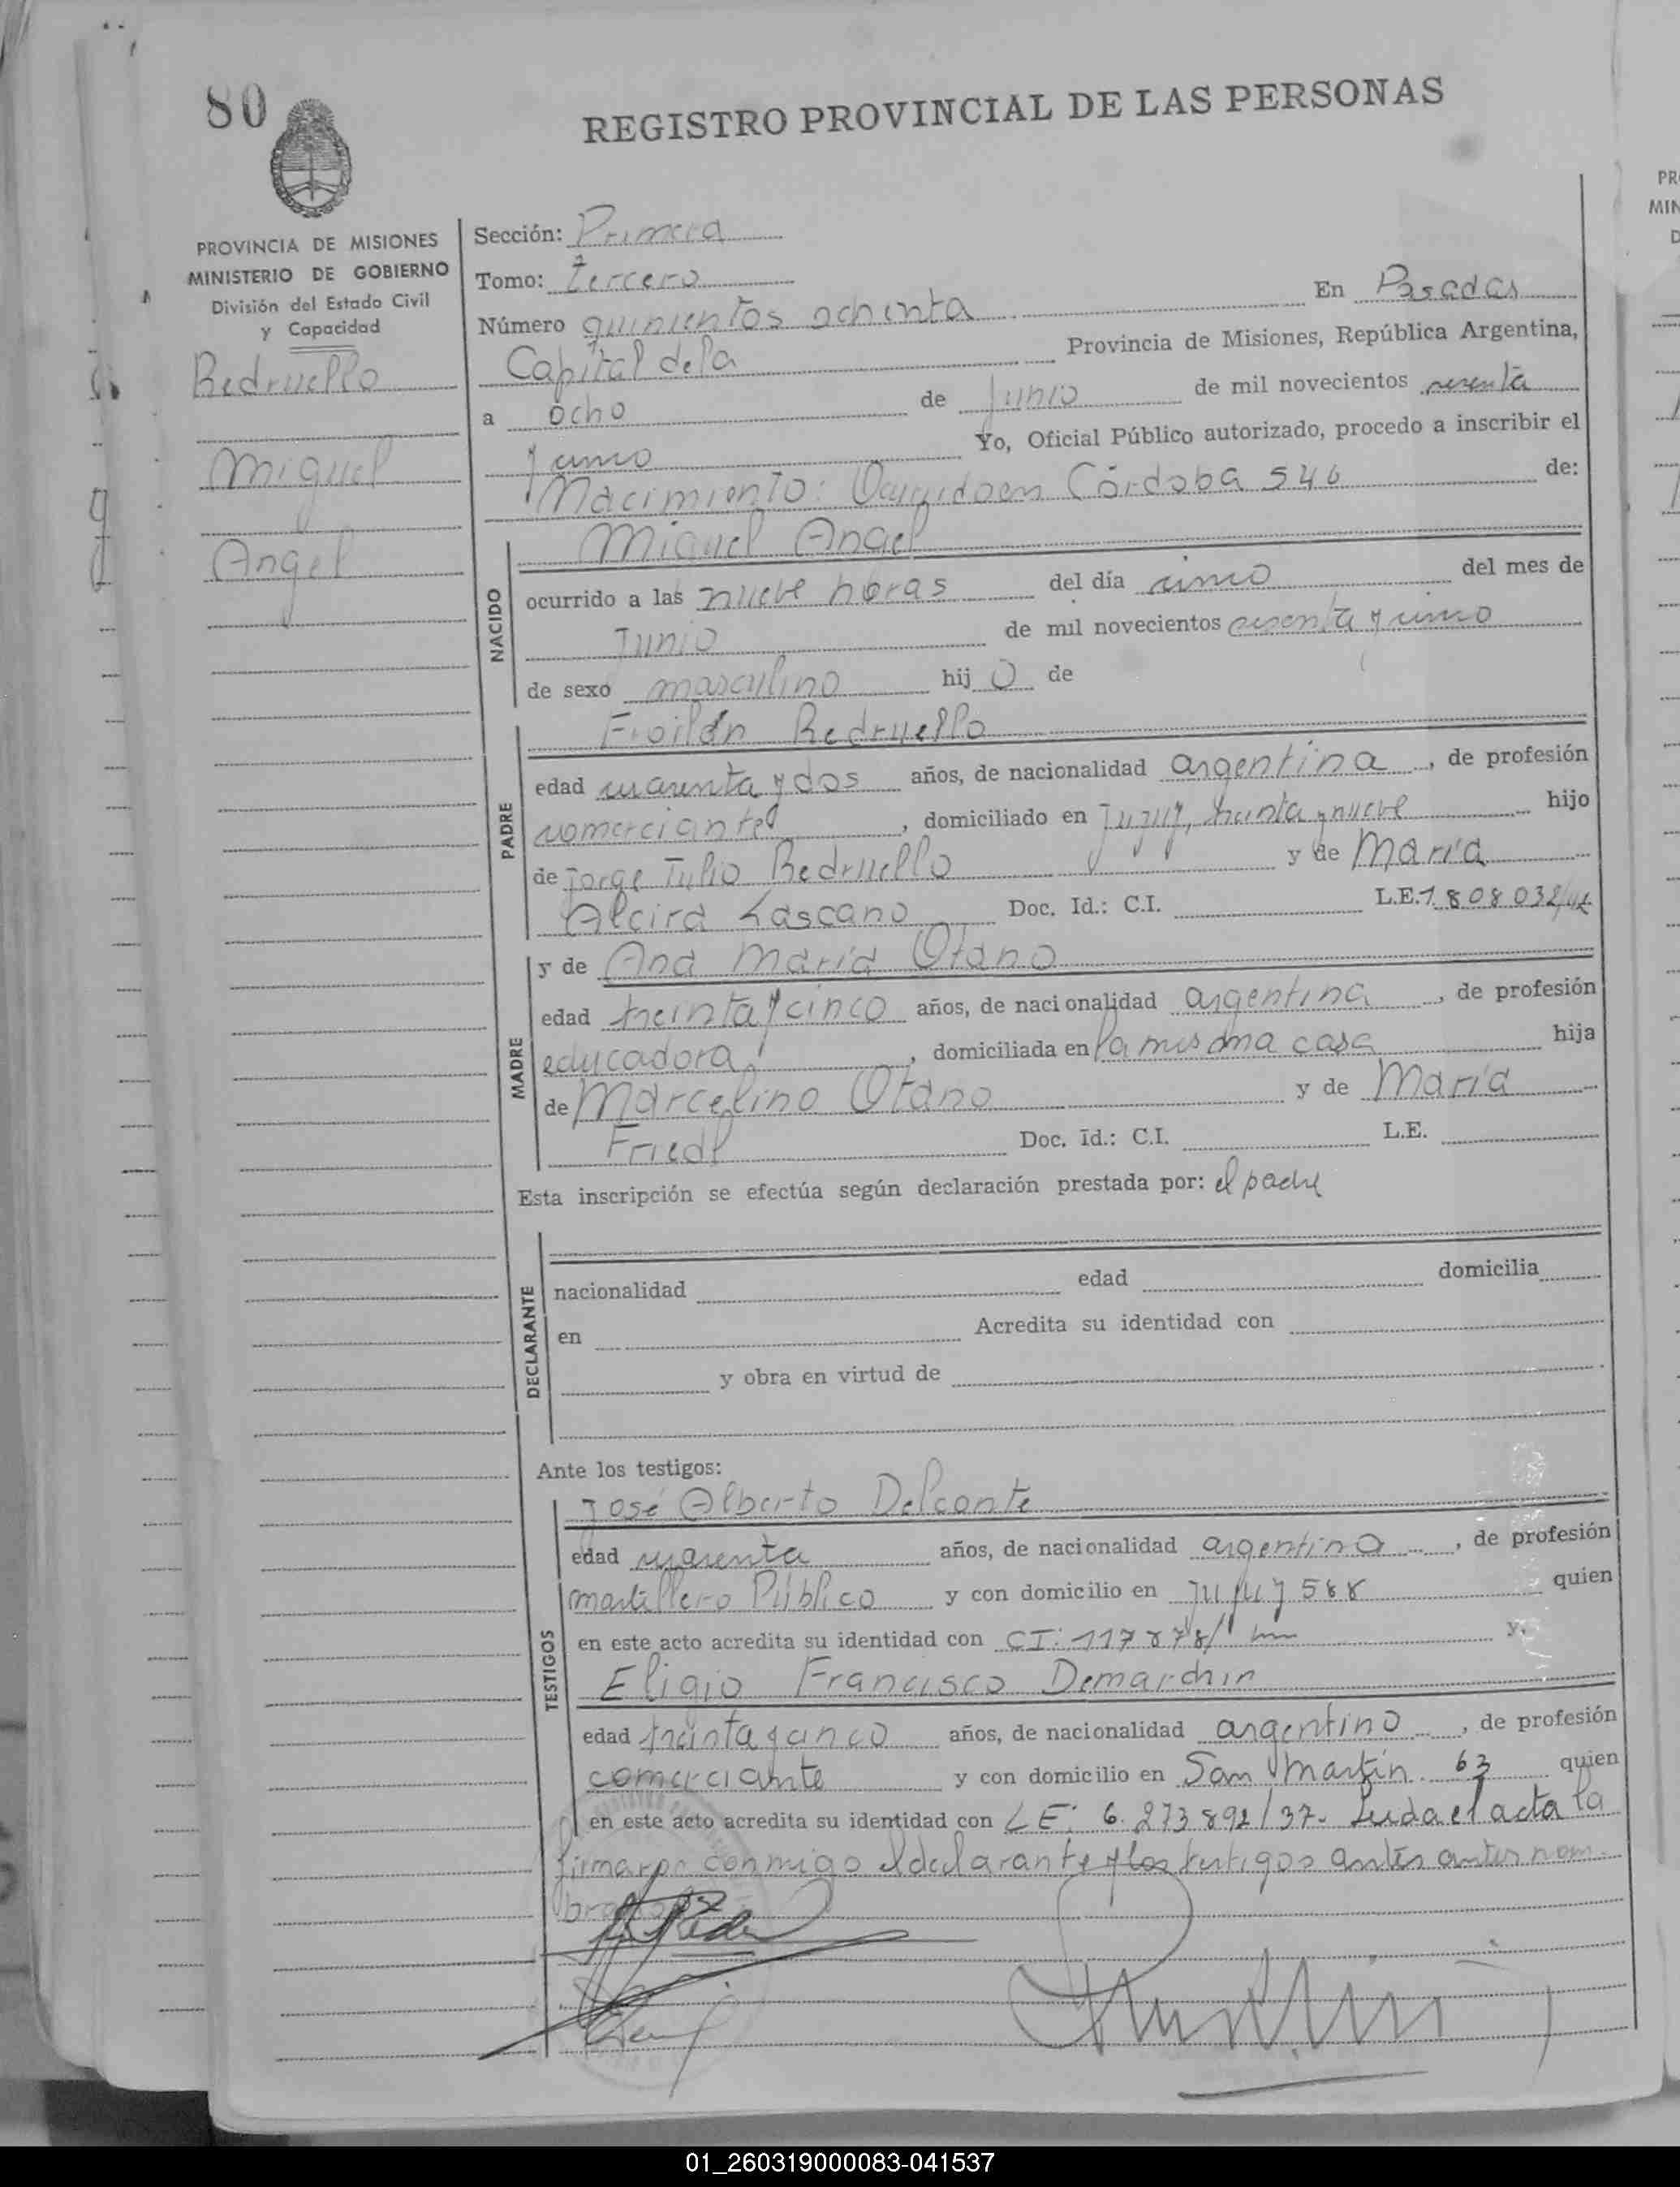 80
REGISTRO PROVINCIAL DE LAS PERSONAS
PROVINCIA DE MISIONES
MINISTERIO DE GOBIERNO
División del Estado Civil
y Capacidad
Redruello
Miguel
Angel
Sección: Primera
Tomo: tercero
Número quinientos ochenta En Posadas
Capital de la Provincia de Misiones, República Argentina,
a ocho de Junio de mil novecientos sesenta
y cinco Yo, Oficial Público autorizado, procedo a inscribir el
Nacimiento: Ocurrido en Córdoba 546 de:
NACIDO
Miguel Angel
ocurrido a las nueve horas del día cinco del mes de
Junio de mil novecientos sesenta y cinco
de sexo masculino hijo de
PADRE
Froilán Redruello
edad cuarenta y dos años, de nacionalidad argentina, de profesión
comerciante, domiciliado en Jujuy, treinta y nueve hijo
de Jorge Julio Redruello y de María
Alcira Lascano Doc. Id.: C.I. L.E.
MADRE
y de Ana María Otano
edad treinta y cinco años, de nacionalidad argentina, de profesión
educadora, domiciliada en la misma casa hija
de Marcelino Otano y de María
Friedl Doc. Id.: C.I. L.E.
Esta inscripción se efectúa según declaración prestada por: el padre
DECLARANTE
nacionalidad edad domicilia
en Acredita su identidad con
y obra en virtud de
Ante los testigos:
TESTIGOS
José Alberto Delconte
edad cuarenta años, de nacionalidad argentina, de profesión
martillero Público y con domicilio en Jujuy 588 quien
en este acto acredita su identidad con CI: y
Eligio Francisco Demarchin
edad treinta y cinco años, de nacionalidad argentino, de profesión
comerciante y con domicilio en San Martín 63 quien
en este acto acredita su identidad con LE: 6.273892/37. Leida el acta la
firmaron conmigo el declarante y los testigos antes antes nom
PR
MIN
D
01_260319000083-041537